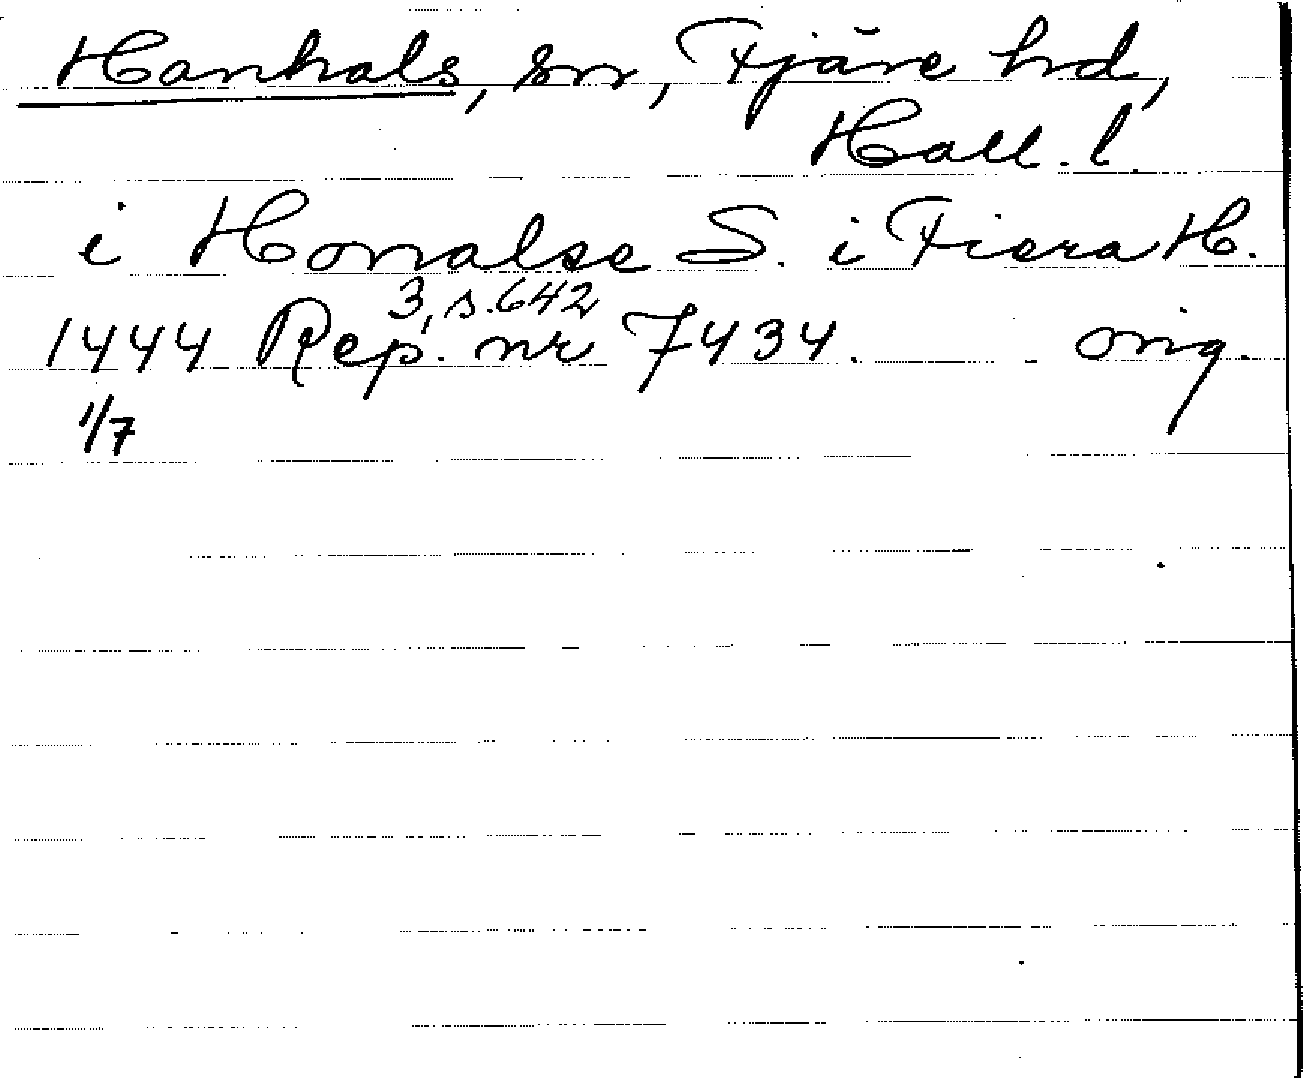 Hanhals, sn, Fjäre hd,
Hall. l.
i Honalse S. i Fiera H.
3, s. 642
1444 Rep. nr 7434. orig.
1/7